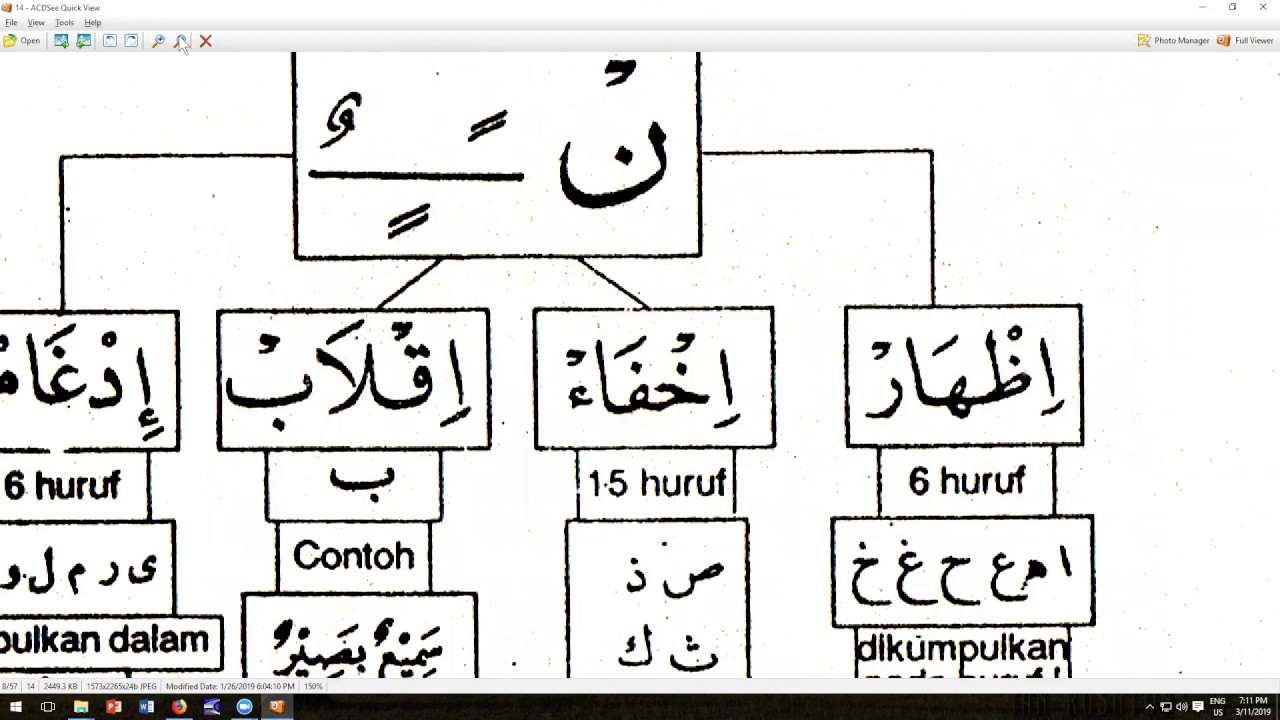 14 - ACDSee Quick View
File View Tools Help
Open
Photo Manager Full Viewer
نْ ـًـٍـٌ
اِظْهَارْ
اِخْفَاءْ
اِقْلَابْ
إِدْغَام
6 huruf
15 huruf
ب
6 huruf
ا ه ع ح غ خ
ص ذ
ث ك
Contoh
ى ر م ل و
dikumpulkan
سَمِيْعٌ بَصِيْرٌ
pulkan dalam
8/57 14 2449.3 KB 1573x2265x24b JPEG Modified Date: 1/26/2019 6:04:10 PM 150%
ENG
US
7:11 PM
3/11/2019